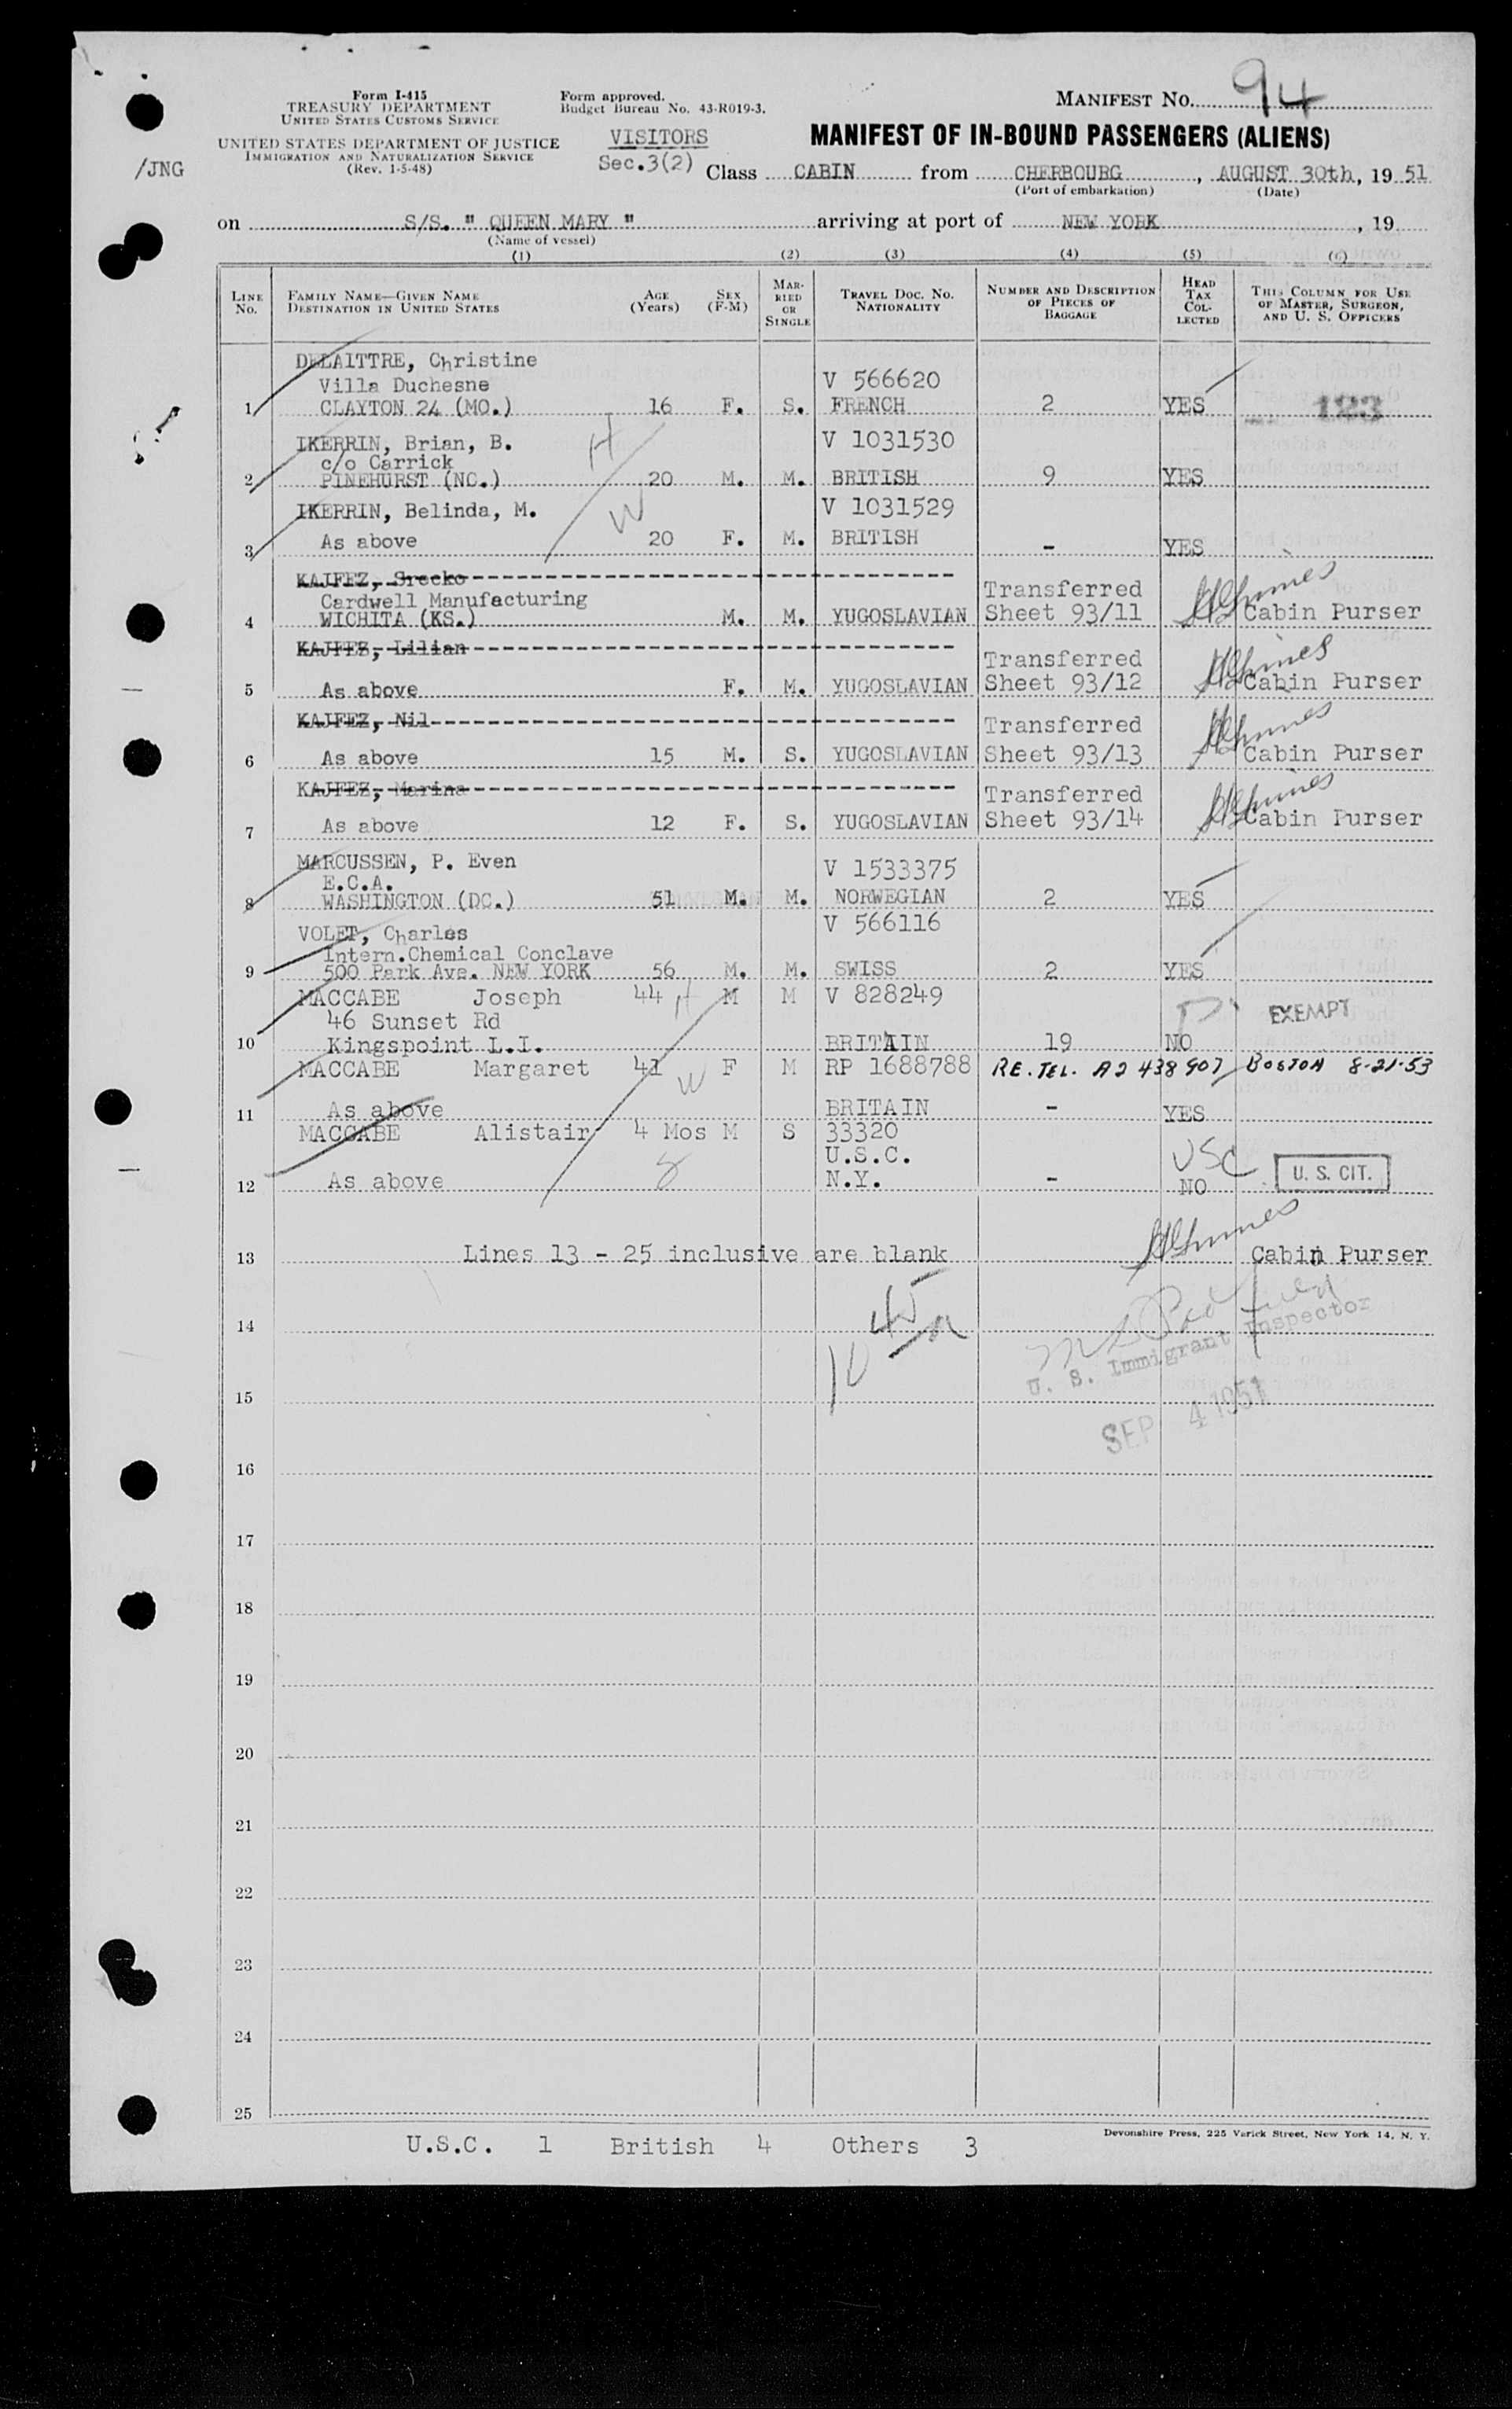 94
Form I-415
TREASURY DEPARTMENT
UNITED STATES CUSTOMS SERVICE
UNITED STATES DEPARTMENT OF JUSTICE
IMMIGRATION AND NATURALIZATION SERVICE
(Rev. 1-5-48)
/JNG
Form approved.
Budget Bureau No. 43-R019-3.
VISITORS
Sec.3(2)
MANIFEST No.
MANIFEST OF IN-BOUND PASSENGERS (ALIENS)
Class CABIN from CHERBOURG, AUGUST 30th, 19 51
(Port of embarkation) (Date)
on S/S. " QUEEN MARY " arriving at port of NEW YORK, 19
(Name of vessel)
(1) (2) (3) (4) (5) (6)
LINE No. FAMILY NAME—GIVEN NAME DESTINATION IN UNITED STATES AGE (Years) SEX (F-M) MARRIED OR SINGLE TRAVEL DOC. No. NATIONALITY NUMBER AND DESCRIPTION OF PIECES OF BAGGAGE HEAD TAX COLLECTED THIS COLUMN FOR USE OF MASTER, SURGEON, AND U. S. OFFICERS
DELAITTRE, Christine
Villa Duchesne V 566620
1 CLAYTON 24 (MO.) 16 F. S. FRENCH 2 YES 123
IKERRIN, Brian, B. H V 1031530
c/o Carrick
2 PINEHURST (NC.) 20 M. M. BRITISH 9 YES
IKERRIN, Belinda, M. W V 1031529
3 As above 20 F. M. BRITISH - YES
KAJFEZ, Srecko
Cardwell Manufacturing Transferred
4 WICHITA (KS.) M. M. YUGOSLAVIAN Sheet 93/11 Cabin Purser
KAJFEZ, Lilian Transferred
5 As above F. M. YUGOSLAVIAN Sheet 93/12 Cabin Purser
KAJFEZ, Nil Transferred
6 As above 15 M. S. YUGOSLAVIAN Sheet 93/13 Cabin Purser
KAJFEZ, Marina Transferred
7 As above 12 F. S. YUGOSLAVIAN Sheet 93/14 Cabin Purser
MARCUSSEN, P. Even V 1533375
E.C.A.
8 WASHINGTON (DC.) 51 M. M. NORWEGIAN 2 YES
VOLET, Charles V 566116
Intern.Chemical Conclave
9 500 Park Ave. NEW YORK 56 M. M. SWISS 2 YES
MACCABE Joseph 44 H M M V 828249
46 Sunset Rd EXEMPT
10 Kingspoint L.I. BRITAIN 19 NO
MACCABE Margaret 41 W F M RP 1688788 RE. TEL. A2 438 907 BOSTON 8-21-53
11 As above BRITAIN - YES
MACCABE Alistair 4 Mos M S 33320
U.S.C. USC
12 As above N.Y. - NO U. S. CIT.
13 Lines 13 - 25 inclusive are blank Cabin Purser
14 U. S. Immigrant Inspector
15 SEP 4 1951
16
17
18
19
20
21
22
23
24
25
Devonshire Press, 225 Varick Street, New York 14, N. Y.
U.S.C. 1 British 4 Others 3